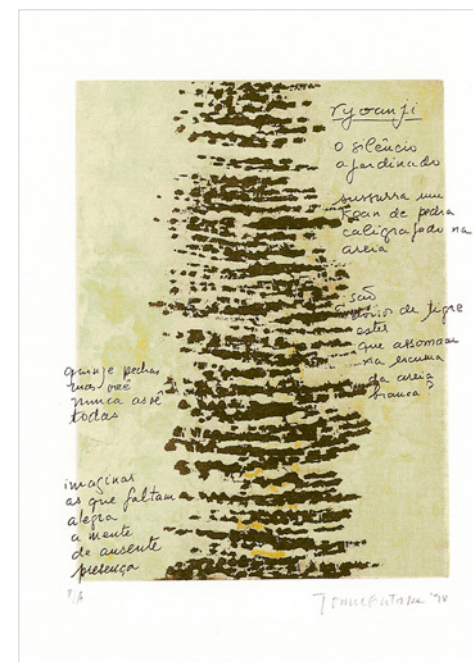 ryoanji
o silêncio
ajardinado
sussurra um
koan de pedra
caligrafado na
areia
são
dorsos de tigre
estes
que assomam
na escuma
da areia
branca?
quinze pedras
mas você
nunca as vê
todas
imaginar
as que faltam
alegra
a mente
de ausente
presença
P/A
Tomie Ohtake '98